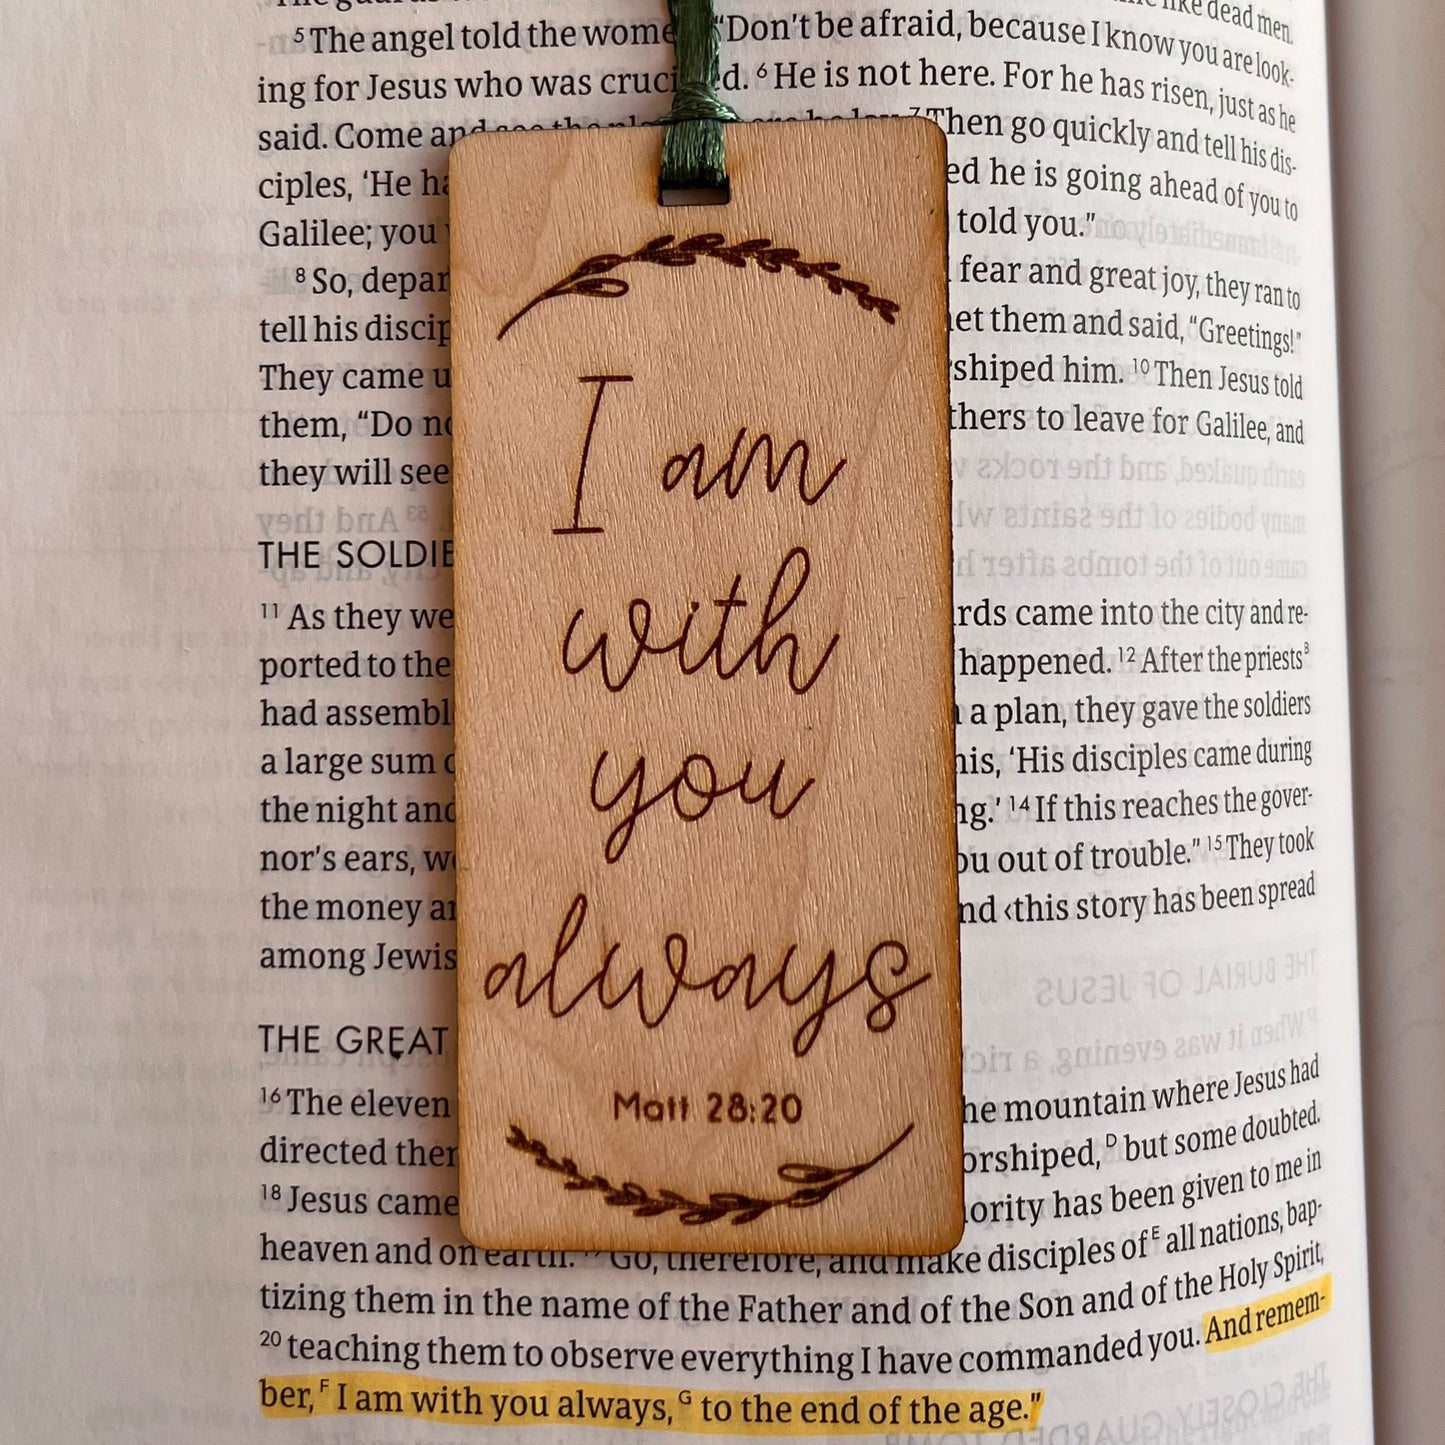 5 The angel told the wome "Don't be afraid, because I know you are look-
ing for Jesus who was cruci d. 6 He is not here. For he has risen, just as he
said. Come and see the pla ere he lay. 7 Then go quickly and tell his dis-
ciples, 'He ha ed he is going ahead of you to
Galilee; you told you."
8 So, depar fear and great joy, they ran to
tell his discip et them and said, "Greetings!"
They came u shiped him. 10 Then Jesus told
them, "Do no thers to leave for Galilee, and
they will see
THE SOLDIE
11 As they we rds came into the city and re-
ported to the happened. 12 After the priests
had assembl a plan, they gave the soldiers
a large sum his, 'His disciples came during
the night and ng.' 14 If this reaches the gover-
nor's ears, we ou out of trouble." 15 They took
the money an nd ‹this story has been spread
among Jewis
THE GREAT
16 The eleven he mountain where Jesus had
directed then orshiped, D but some doubted.
18 Jesus came ority has been given to me in
heaven and on earth. 19 Go, therefore, and make disciples of E all nations, bap-
tizing them in the name of the Father and of the Son and of the Holy Spirit,
20 teaching them to observe everything I have commanded you. And remem-
ber, F I am with you always, G to the end of the age."
I am
with
you
always
Matt 28:20